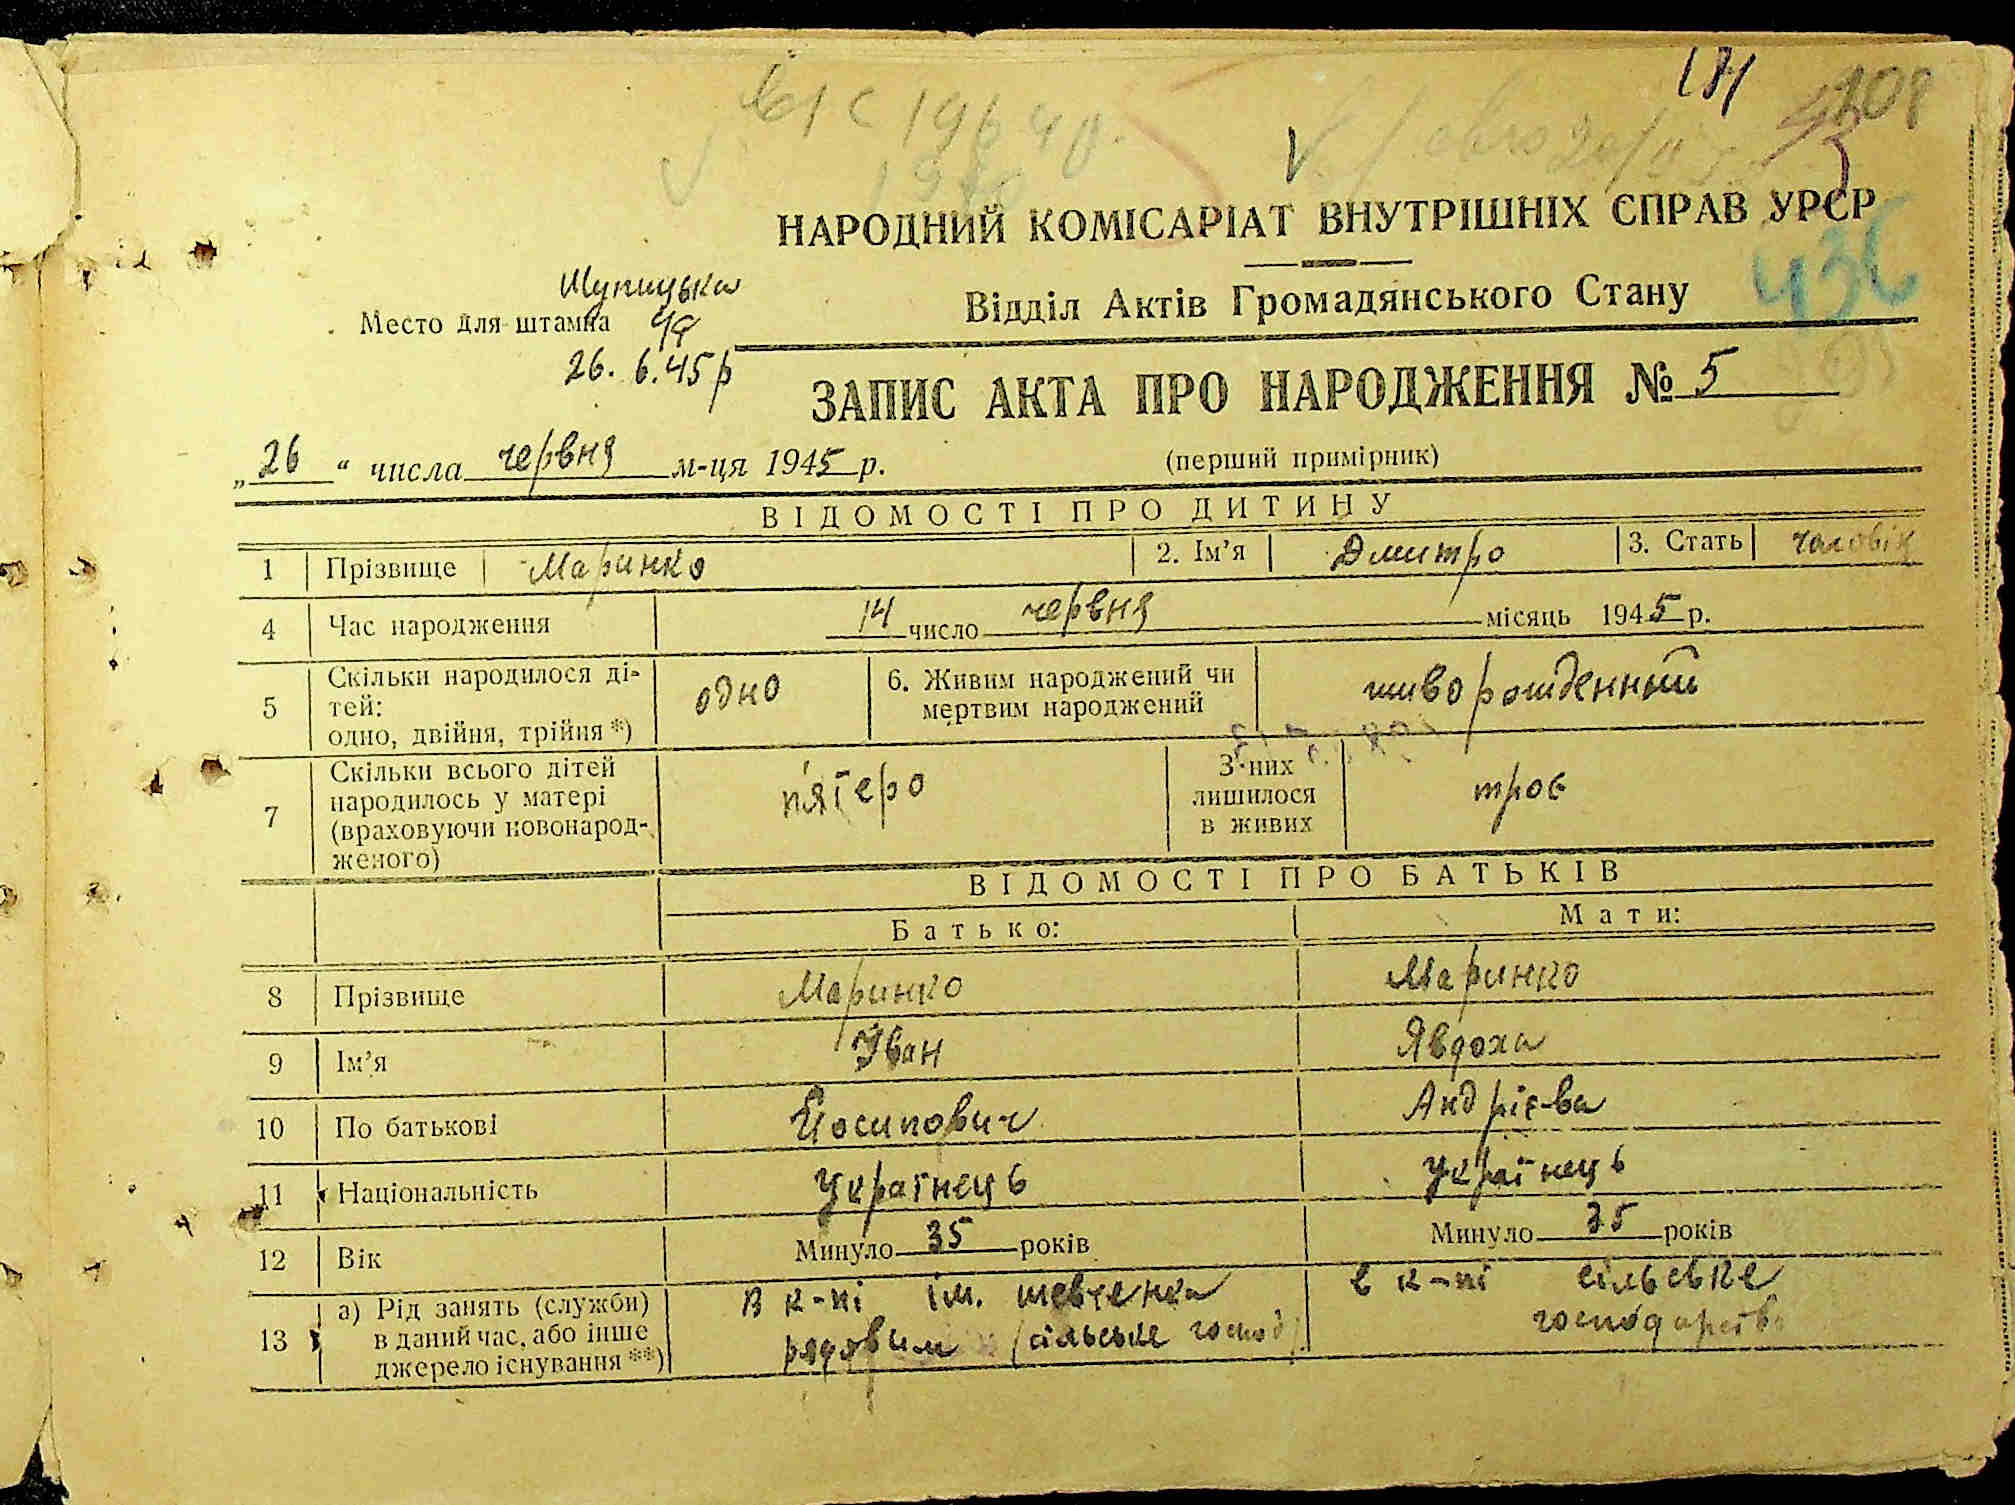 171
108
436
НАРОДНИЙ КОМІСАРІАТ ВНУТРІШНІХ СПРАВ УРСР
Відділ Актів Громадянського Стану
Шупицька
Место для штампа
26. 6. 45 р
ЗАПИС АКТА ПРО НАРОДЖЕННЯ № 5
„ 26 “ числа червня м-ця 1945 р.
(перший примірник)
ВІДОМОСТІ ПРО ДИТИНУ
1 Прізвище Маринко 2. Ім’я Дмитро 3. Стать чоловік
4 Час народження 14 число червня місяць 1945 р.
5 Скільки народилося ді-
тей:
одно, двійня, трійня *) одно 6. Живим народжений чи
мертвим народжений живорожденный
7 Скільки всього дітей
народилось у матері
(враховуючи новонарод-
женого) п'ятеро З них
лишилося
в живих троє
ВІДОМОСТІ ПРО БАТЬКІВ
Батько: Мати:
8 Прізвище Маринко Маринко
9 Ім’я Іван Явдоха
10 По батькові Йосипович Андрієва
11 Національність Українець Українець
12 Вік Минуло 35 років Минуло 35 років
13 а) Рід занять (служби)
в даний час, або інше
джерело існування **) В к-пі ім. шевченка
рядовим (сільське господ) в к-пі сільське
господарство